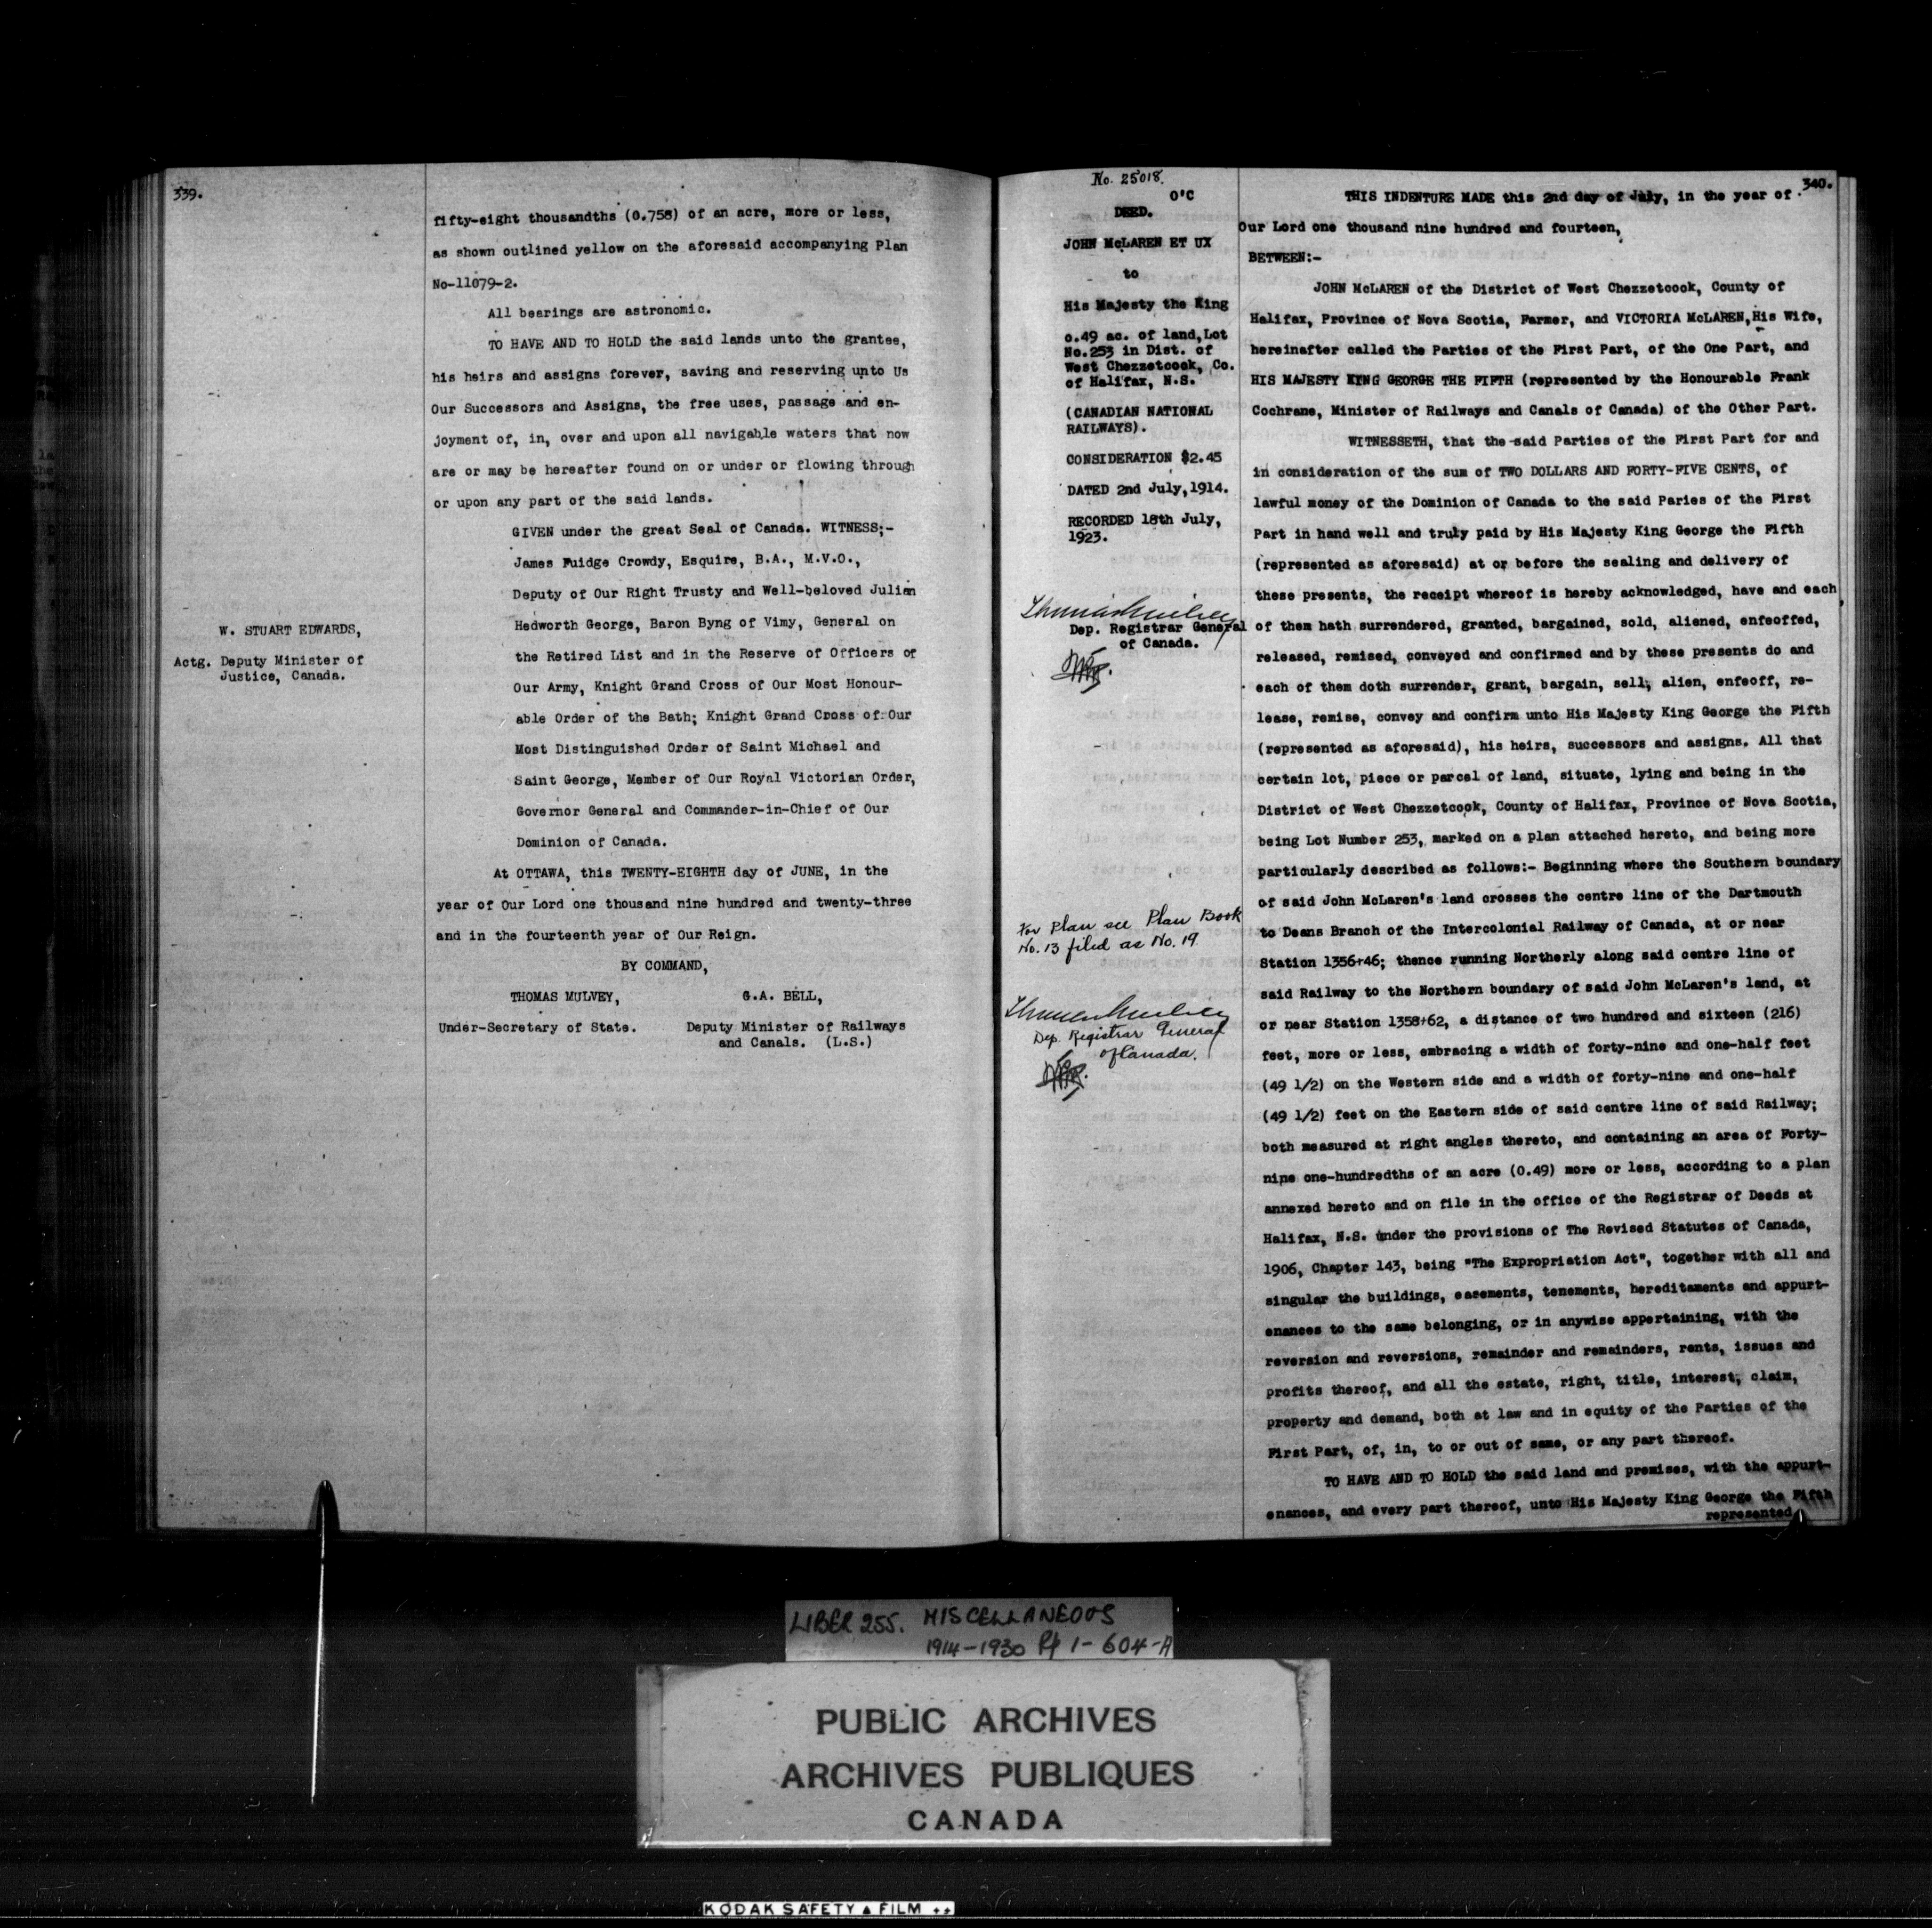 339.
fifty-eight thousandths (0.758) of an acre, more or less,
as shown outlined yellow on the aforesaid accompanying Plan
No-11079-2.
All bearings are astronomic.
TO HAVE AND TO HOLD the said lands unto the grantee,
his heirs and assigns forever, saving and reserving unto Us
Our Successors and Assigns, the free uses, passage and en-
joyment of, in, over and upon all navigable waters that now
are or may be hereafter found on or under or flowing through
or upon any part of the said lands.
GIVEN under the great Seal of Canada. WITNESS;-
James Fuidge Crowdy, Esquire, B.A., M.V.O.,
Deputy of Our Right Trusty and Well-beloved Julian
Hedworth George, Baron Byng of Vimy, General on
the Retired List and in the Reserve of Officers of
Our Army, Knight Grand Cross of Our Most Honour-
able Order of the Bath; Knight Grand Cross of Our
Most Distinguished Order of Saint Michael and
Saint George, Member of Our Royal Victorian Order,
Governor General and Commander-in-Chief of Our
Dominion of Canada.
W. STUART EDWARDS,
Actg. Deputy Minister of
Justice, Canada.
At OTTAWA, this TWENTY-EIGHTH day of JUNE, in the
year of Our Lord one thousand nine hundred and twenty-three
and in the fourteenth year of Our Reign.
BY COMMAND,
THOMAS MULVEY, G.A. BELL,
Under-Secretary of State. Deputy Minister of Railways
and Canals. (L.S.)
No. 25018.
O'C
DEED.
JOHN McLAREN ET UX
to
His Majesty the King
0.49 ac. of land, Lot
No.253 in Dist. of
West Chezzetcook, Co.
of Halifax, N.S.
(CANADIAN NATIONAL
RAILWAYS).
CONSIDERATION $2.45
DATED 2nd July, 1914.
RECORDED 18th July,
1923.
Thomas Mulvey
Dep. Registrar General
of Canada.
For Plan see Plan Book
No. 13 filed as No. 19
Thomas Mulvey
Dep. Registrar General
of Canada.
340.
THIS INDENTURE MADE this 2nd day of July, in the year of
Our Lord one thousand nine hundred and fourteen,
BETWEEN:-
JOHN McLAREN of the District of West Chezzetcook, County of
Halifax, Province of Nova Scotia, Farmer, and VICTORIA McLAREN, His Wife,
hereinafter called the Parties of the First Part, of the One Part, and
HIS MAJESTY KING GEORGE THE FIFTH (represented by the Honourable Frank
Cochrane, Minister of Railways and Canals of Canada) of the Other Part.
WITNESSETH, that the said Parties of the First Part for and
in consideration of the sum of TWO DOLLARS AND FORTY-FIVE CENTS, of
lawful money of the Dominion of Canada to the said Paries of the First
Part in hand well and truly paid by His Majesty King George the Fifth
(represented as aforesaid) at or before the sealing and delivery of
these presents, the receipt whereof is hereby acknowledged, have and each
of them hath surrendered, granted, bargained, sold, aliened, enfeoffed,
released, remised, conveyed and confirmed and by these presents do and
each of them doth surrender, grant, bargain, sell, alien, enfeoff, re-
lease, remise, convey and confirm unto His Majesty King George the Fifth
(represented as aforesaid), his heirs, successors and assigns. All that
certain lot, piece or parcel of land, situate, lying and being in the
District of West Chezzetcook, County of Halifax, Province of Nova Scotia,
being Lot Number 253, marked on a plan attached hereto, and being more
particularly described as follows:- Beginning where the Southern boundary
of said John McLaren's land crosses the centre line of the Dartmouth
to Deans Branch of the Intercolonial Railway of Canada, at or near
Station 1356+46; thence running Northerly along said centre line of
said Railway to the Northern boundary of said John McLaren's land, at
or near Station 1358+62, a distance of two hundred and sixteen (216)
feet, more or less, embracing a width of forty-nine and one-half feet
(49 1/2) on the Western side and a width of forty-nine and one-half
(49 1/2) feet on the Eastern side of said centre line of said Railway;
both measured at right angles thereto, and containing an area of Forty-
nine one-hundredths of an acre (0.49) more or less, according to a plan
annexed hereto and on file in the office of the Registrar of Deeds at
Halifax, N.S. under the provisions of The Revised Statutes of Canada,
1906, Chapter 143, being "The Expropriation Act", together with all and
singular the buildings, easements, tenements, hereditaments and appurt-
enances to the same belonging, or in anywise appertaining, with the
reversion and reversions, remainder and remainders, rents, issues and
profits thereof, and all the estate, right, title, interest, claim,
property and demand, both at law and in equity of the Parties of the
First Part, of, in, to or out of same, or any part thereof.
TO HAVE AND TO HOLD the said land and premises, with the appurt-
enances, and every part thereof, unto His Majesty King George the Fifth
represented
LIBER 255. MISCELLANEOUS
1914-1930 Pp 1-604-A
PUBLIC ARCHIVES
ARCHIVES PUBLIQUES
CANADA
KODAK SAFETY FILM